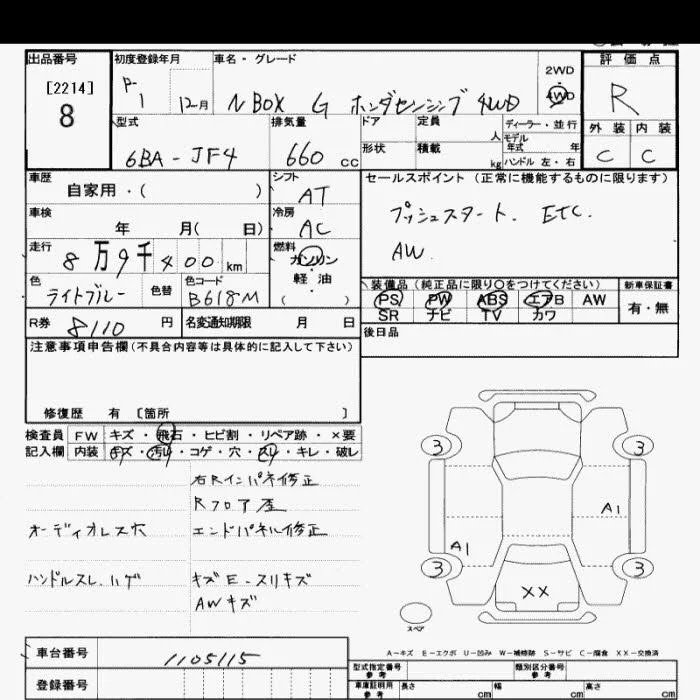 出品番号 初度登録年月 車名・グレード 評価点
[2214] 8
R1 12月 N BOX G ホンダセンシング 4WD 2WD 4WD R
型式 排気量 ドア 定員 人 ディーラー・並行 外装 内装
モデル年式 年
6BA-JF4 660 cc 形状 積載 kg ハンドル 左・右 C C
車歴 自家用・( ) シフト AT セールスポイント(正常に機能するものに限ります)
車検 年 月( 日) 冷房 AC プッシュスタート. ETC.
走行 8万9千400km 燃料 ガソリン・軽油 ( ) AW.
色 ライトブルー 色替 色コード B618M 装備品(純正品に限り○をつけてください) 新車保証書
PS PW ABS エアB AW 有・無
SR ナビ TV カワ
R券 8110円 名変通知期限 月 日 後日品
注意事項申告欄(不具合内容等は具体的に記入して下さい)
修復歴 有 〔箇所 〕
検査員 FW キズ・飛石・ヒビ割・リペア跡・×要
記入欄 内装 キズ・汚レ・コゲ・穴・スレ・キレ・破レ
右Rインパネ修正
Rフロア歪
オーディオレス穴 エンドパネル修正
ハンドルスレ.ハゲ キズE-スリキズ
AWキズ
3 3
A1
A1
3 3
XX
スペア
A-キズ E-エクボ U-凹み W-補修跡 S-サビ C-腐食 XX-交換済
車台番号 1105115 型式指定番号 参考 類別区分番号 参考
登録番号 車庫証明用 参考 長さ cm 幅 cm 高さ cm